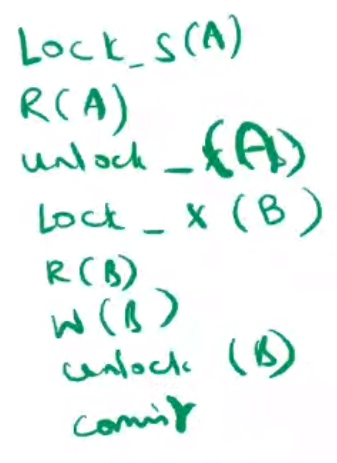 Lock_S(A)
R(A)
unlock_(A)
Lock_X(B)
R(B)
W(B)
unlock (B)
commit